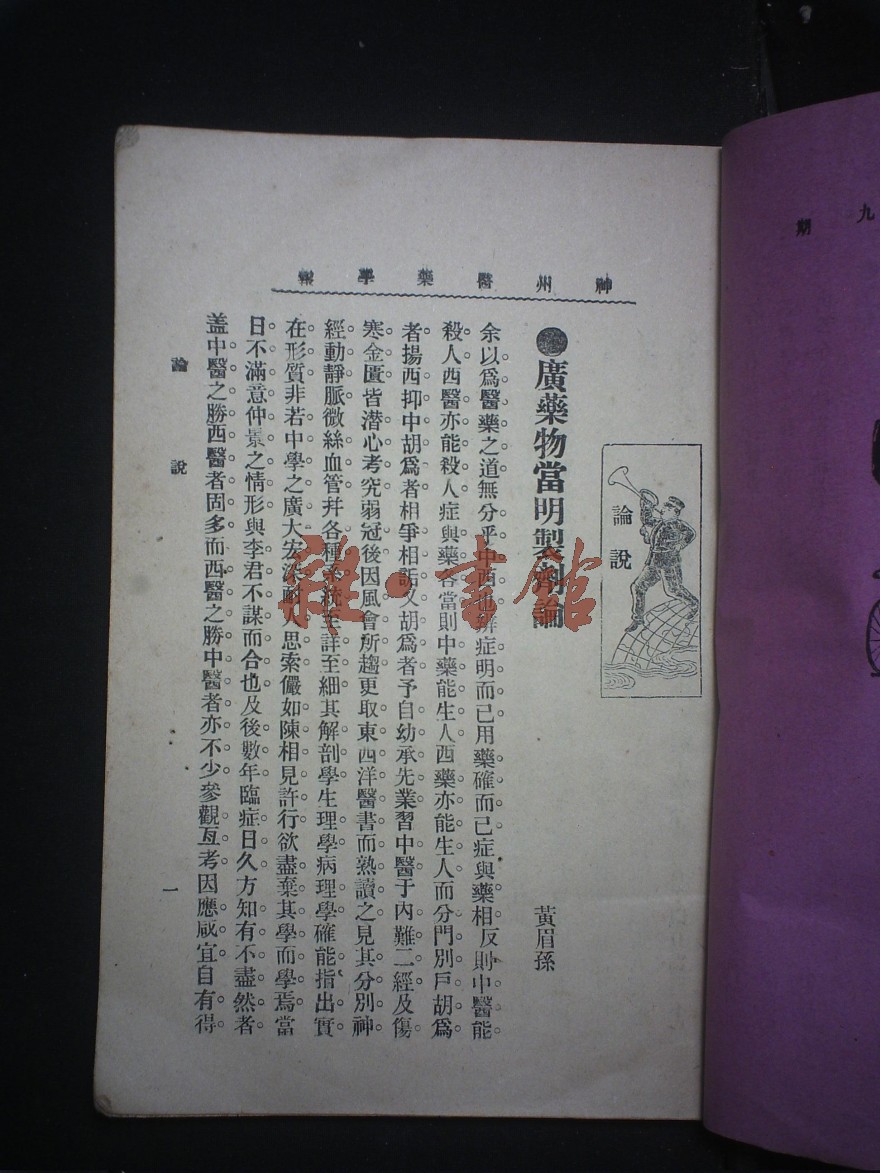 神州醫藥學報
論說
廣藥物當明製劑論
黃眉孫
余以爲醫藥之道無分乎中西也辨症明而已用藥確而已症與藥相反則中醫能
殺人西醫亦能殺人症與藥容當則中藥能生人西藥亦能生人而分門別戶胡爲
者揚西抑中胡爲者相爭相詬又胡爲者予自幼承先業習中醫于內難二經及傷
寒金匱皆潛心考究弱冠後因風會所趨更取東西洋醫書而熟讀之見其分別神
經動靜脈微絲血管幷各種系統至詳至細其解剖學生理學病理學確能指出實
在形質非若中學之廣大宏深耐人思索儼如陳相見許行欲盡棄其學而學焉當
日不滿意仲景之情形與李君不謀而合也及後數年臨症日久方知有不盡然者
盖中醫之勝西醫者固多而西醫之勝中醫者亦不少參觀互考因應咸宜自有得
論說
一
九期
雜·書館